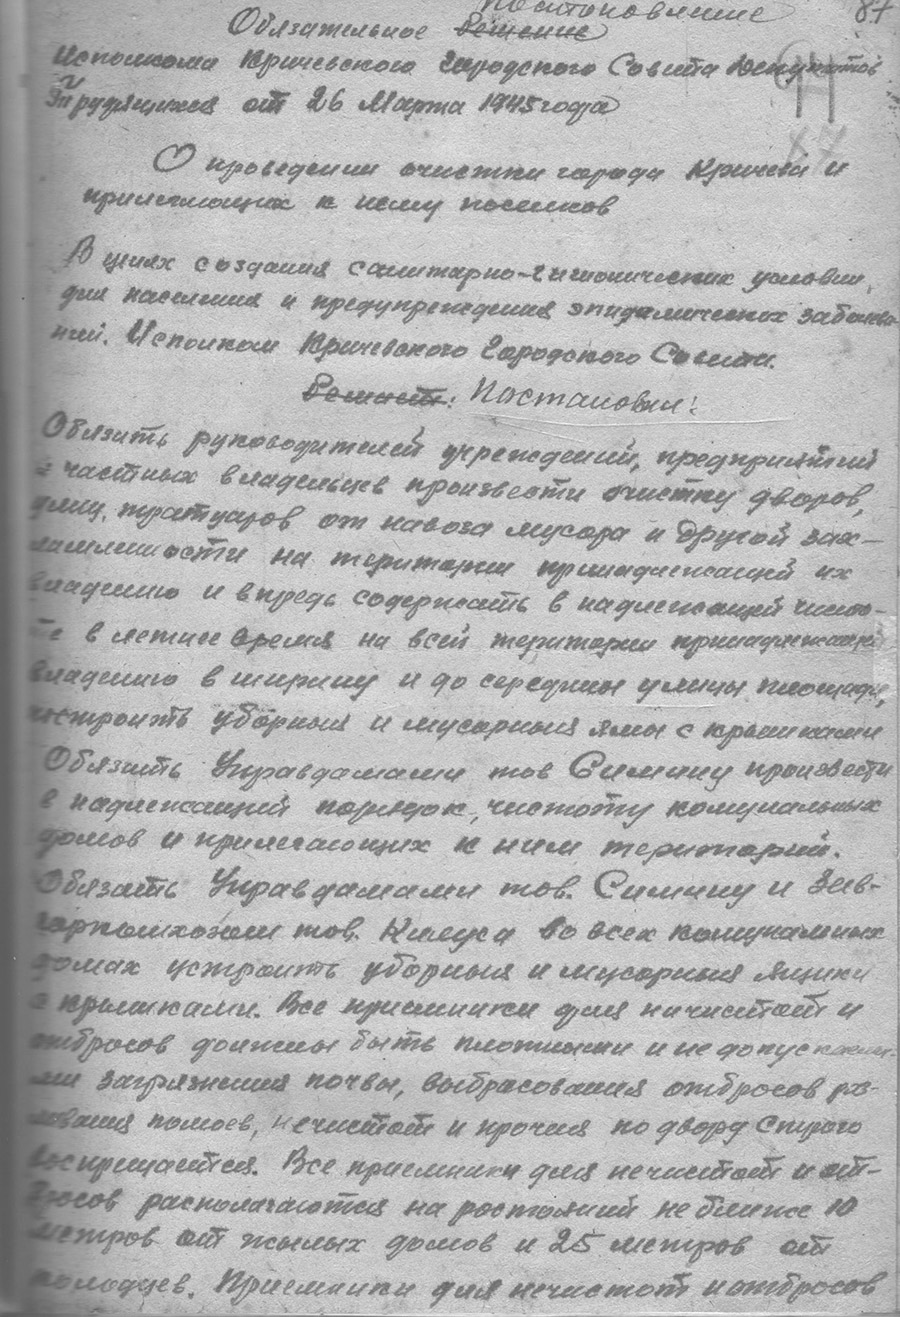 Постановление 87
Обязательное Решение
Исполкома Кричевского Городского Совета Депутатов
Трудящихся от 26 Марта 1945 года
О проведении очистки города Кричева и
прилегающих к нему поселков
В целях создания санитарно-гигиенических условии,
для населения и предупреждения эпидемических заболева-
ний. Исполком Кричевского Городского Совета.
Решает: Постановил:
Обязать руководителей учреждений, предприятий
и частных владельцев произвести очистку дворов,
улиц, тратуаров от навоза мусора и другой зах-
ламленности на територии принадлежащей их
владению и впредь содержать в надлежащей чисто-
те в летнее время на всей територии принадлежащей
владению в ширину и до середины улицы площади,
построить уборныя и мусорныя ямы с крышками
Обязать Управдомами тов Симину произвести
в надлежащий порядок, чистоту комунальных
домов и прилегающих к ним територий.
Обязать Управдомами тов. Симину и Зав-
горкомхозом тов. во всех комунальных
домах устроить уборныя и мусорныя ящики
с крышками. Все приемники для нечистот и
отбросов должны быть плотными и не допускающи-
ми загрязнения почвы, выбрасования отбросов
помоев, нечистот и прочия по двору Строго
воспрещается. Все приемники для нечистот и от-
бросов располагаются на ростояний не ближе 10
метров от жылых домов и 25 метров от
колодцев. Приемники для нечистот и отбросов